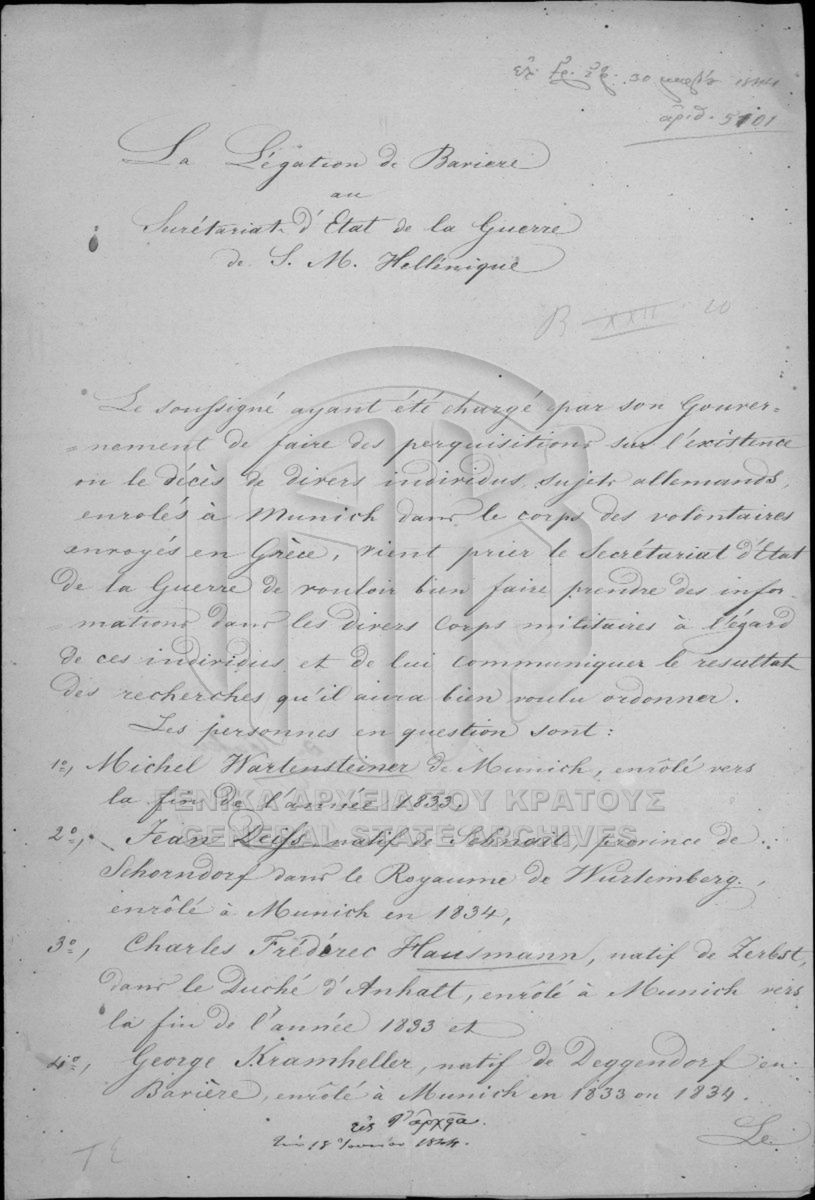 30 1844
ἀριθ. 5101
La Légation de Bavière
au
Secrétariat d'Etat de la Guerre
de S. M. Hellénique
B XXII 20
Le soussigné ayant été chargé par son Gouver-
-nement de faire des perquisitions sur l'existence
ou le décès de divers individus, sujets allemands,
enrolés à Munich dans le corps des volontaires
envoyés en Grèce, vient prier le Secrétariat d'Etat
de la Guerre de vouloir bien faire prendre des infor-
-mations dans les divers Corps militaires à l'égard
de ces individus et de lui communiquer le resultat
des recherches qu'il aura bien voulu ordonner.
Les personnes en question sont:
1º, Michel Wartensteiner de Munich, enrôlé vers
la fin de l'année 1833.
ΓΕΝΙΚΑ ΑΡΧΕΙΑ ΤΟΥ ΚΡΑΤΟΥΣ
GENERAL STATE ARCHIVES
2º, Jean Deiss natif de Schnait, province de
Schorndorf dans le Royaume de Wurtemberg,
enrôlé à Munich en 1834,
3º, Charles Fréderec Hausmann, natif de Zerbst,
dans le Duché d'Anhalt, enrôlé à Munich vers
la fin de l'année 1833 et
4º, George Kramheller, natif de Deggendorf en
Bavière, enrôlé à Munich en 1833 ou 1834.
εἰς τ' ἀρχεῖα.
18 1844.
Le